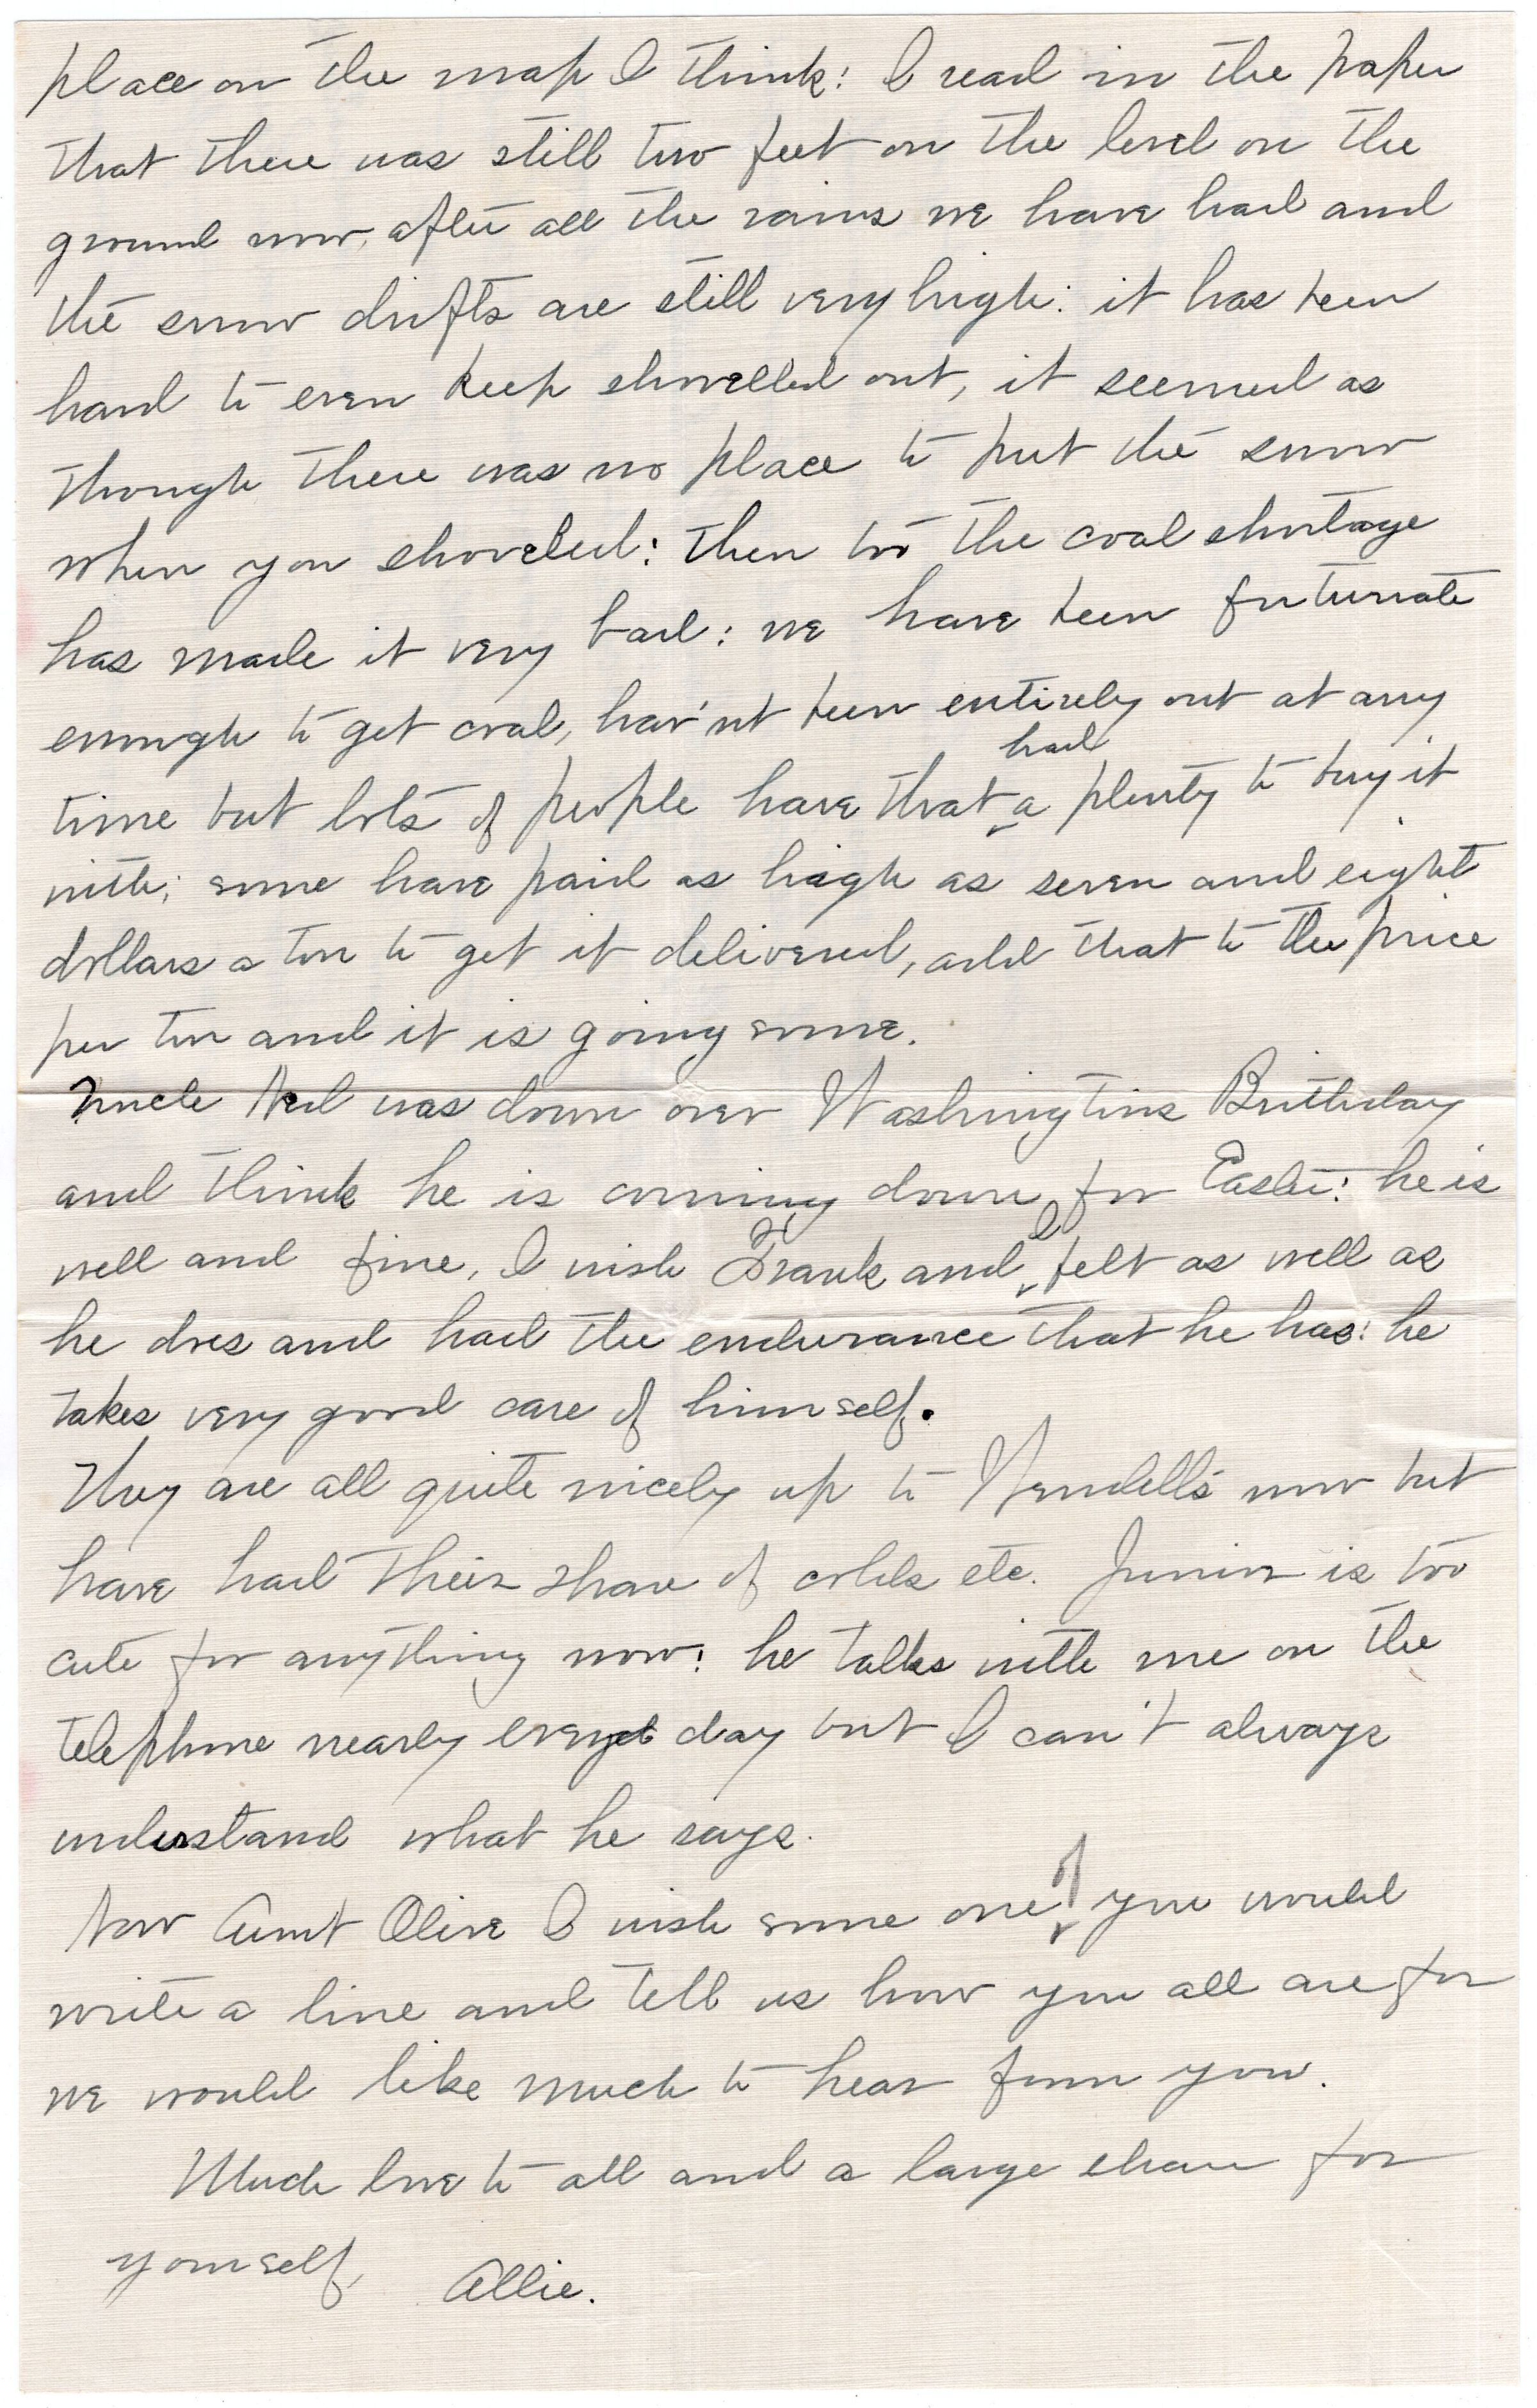 place on the map I think: I read in the paper
that there was still two feet on the level on the
ground now, after all the rains we have had and
the snow drifts are still very high: it has been
hard to even keep shovelled out, it seemed as
though there was no place to put the snow
when you shoveled: then too the coal shortage
has made it very bad: we have been fortunate
enough to get coal, hav'nt been entirely out at any
time but lots of people have that had a plenty to buy it
with; some have paid as high as seven and eight
dollars a ton to get it delivered, add that to the price
per ton and it is going some.
Uncle Ned was down over Washingtons Birthday
and think he is coming down for Easter: he is
well and fine, I wish Frank and I felt as well as
he does and had the endurance that he has: he
takes very good care of himself.
They are all quite nicely up to Wendell's now but
have had their share of colds etc. Junior is too
cute for anything now: he talks with me on the
telephone nearly every day but I can't always
understand what he says.
Now Aunt Olive I wish some one of you would
write a line and tell us how you all are for
we would like much to hear from you.
Much love to all and a large share for
yourself, Allie.